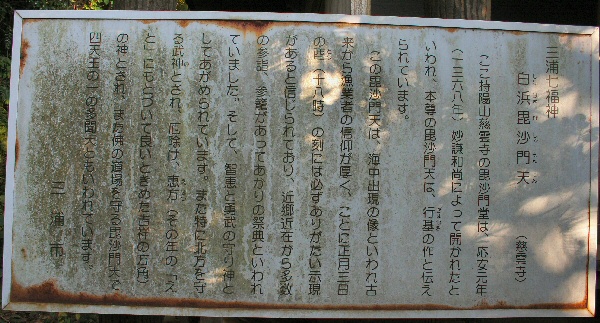 三浦七福神
白浜毘沙門天
しらはまびしゃもんてん
(慈雲寺)
ここ持陽山慈雲寺の毘沙門堂は、応安元年
(一三六八年)妙謙和尚によって開かれたと
いわれ、本尊の毘沙門天は、行基の作と伝え
られています。
この毘沙門天は、海中出現の像といわれ古
来から漁業者の信仰が厚く、ことに正月三日
の酉(十八時)の刻には必ずありがたい示現
があると信じられており、近郷近在から多数
の参詣、参籠があってあかりの祭典といわれ
ていました。そして、智恵と勇武の守り神と
してあがめられています。また特に北方を守
る武神とされ、厄除け、恵方(その年の「え
と」にもとづいて良いときめた吉祥の方角)
の神とされ、また佛の道場を守る毘沙門天で
四天王の一の多聞天ともいわれています。
三浦市